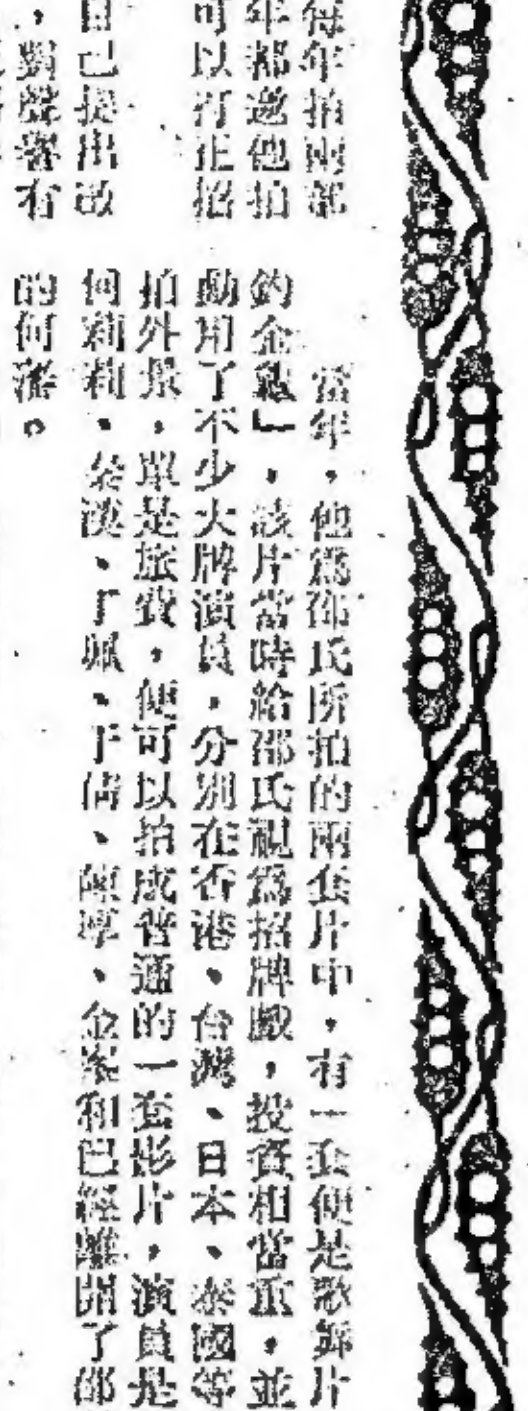 每年拍兩部
年都邀他拍
可以打正招
自己提出改
，對聲譽有
當年，他爲邵氏所拍的兩套片中，有一套便是歌舞片
釣金龜」，該片當時給邵氏視爲招牌戲，投資相當重，並
動用了不少大牌演員，分別在香港、台灣、日本、泰國等
拍外景，單是旅費，便可以拍成普通的一套影片，演員是
何莉莉、秦漢、丁珮、于倩、陳厚、金峯和已經離開了邵
的何藩。